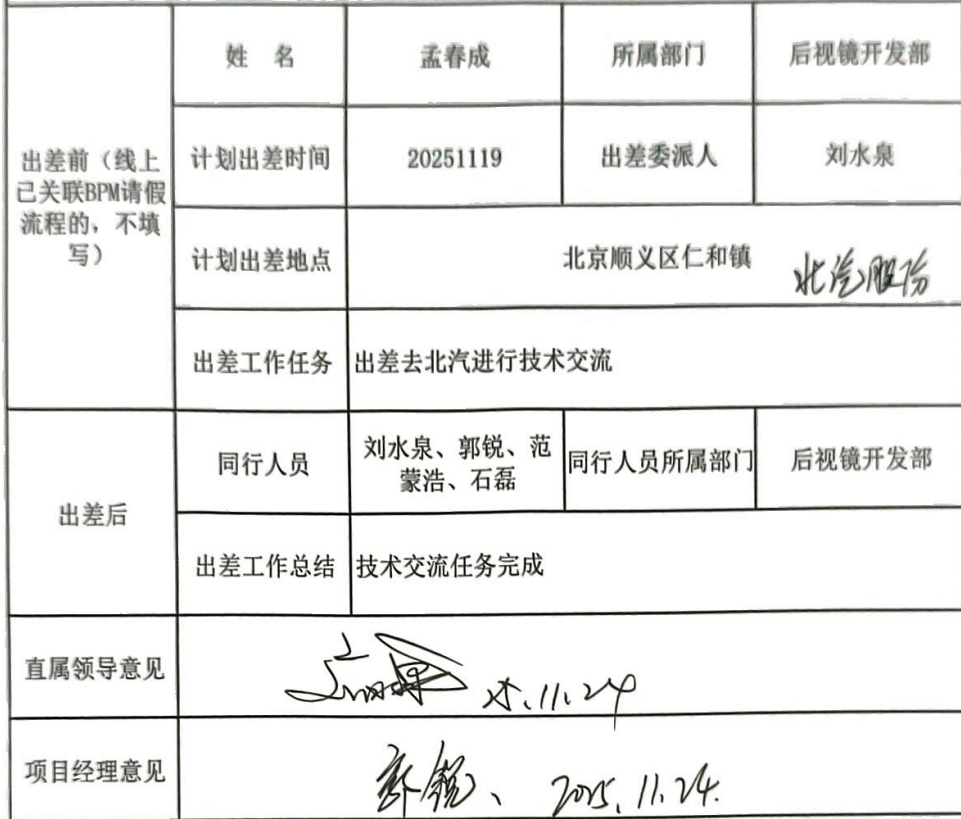 姓 名 孟春成 所属部门 后视镜开发部
出差前（线上
已关联BPM请假
流程的，不填
写）
计划出差时间 20251119 出差委派人 刘水泉
计划出差地点 北京顺义区仁和镇 北汽股份
出差工作任务 出差去北汽进行技术交流
出差后
同行人员 刘水泉、郭锐、范
蒙浩、石磊 同行人员所属部门 后视镜开发部
出差工作总结 技术交流任务完成
直属领导意见 25.11.24
项目经理意见 郭锐、 2025.11.24.